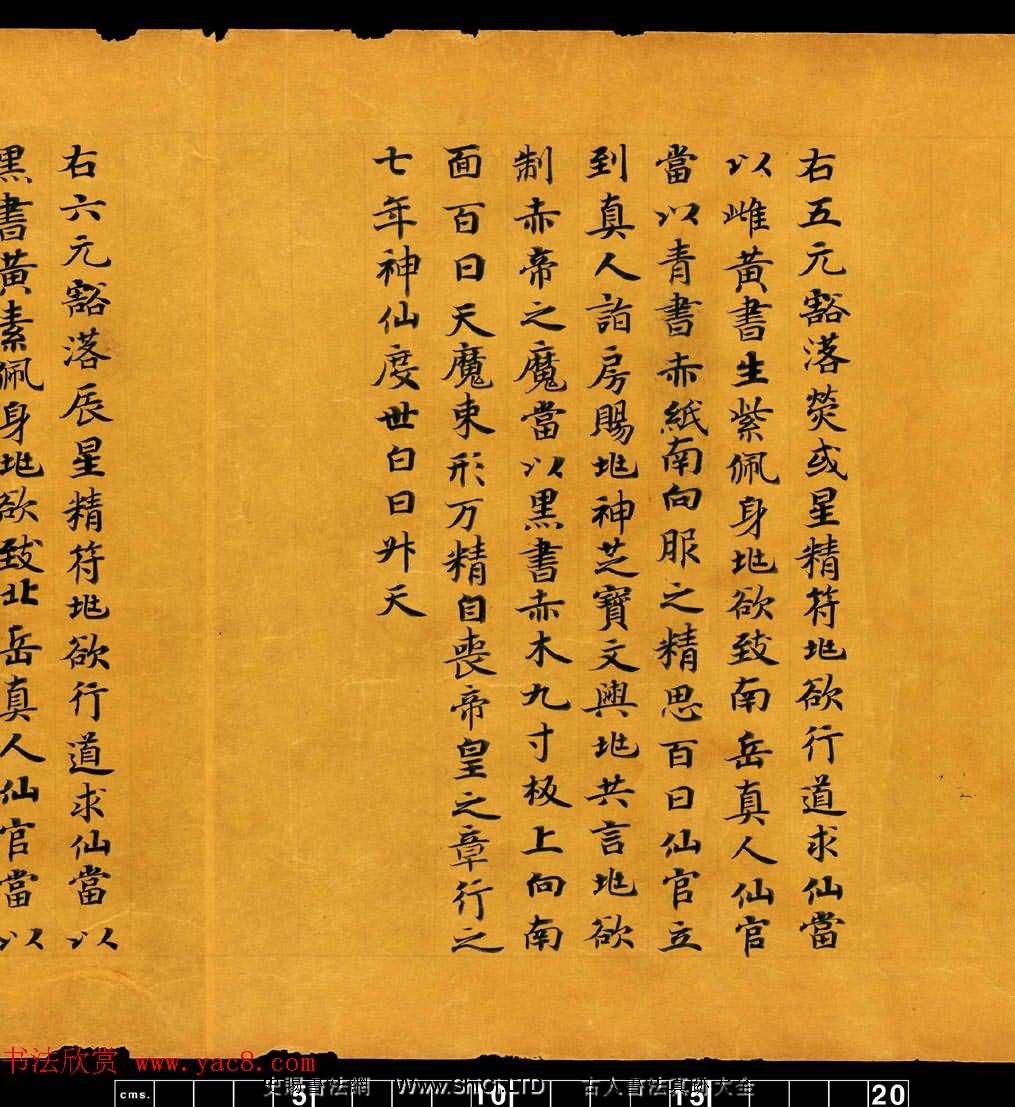 右五元豁落熒或星精符凡欲行道求仙當
以雌黃書生紫佩身凡欲致南岳真人仙官
當以青書赤紙南向服之精思百日仙官立
到真人詣房賜凡神芝寶文輿凡共言凡欲
制赤帝之魔當以黑書赤木九寸板上向南
面百日天魔束形万精自喪帝皇之章行之
七年神仙度世白日升天
右六元豁落辰星精符凡欲行道求仙當以
黑書黃素佩身凡欲致北岳真人仙官當以
书法欣赏 www.yac8.com
史賜書法網 Www.ShiCi.LTD 古人書法真跡大全
cms. 5 10 15 20